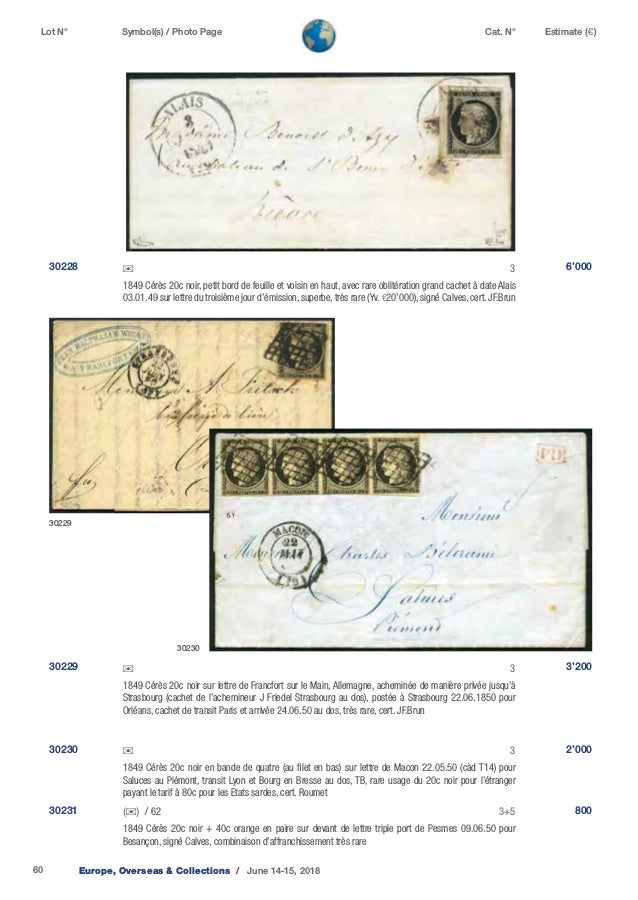 Lot N° Symbol(s) / Photo Page Cat. N° Estimate (€)
ALAIS
3
Madame Benoist d'Azy
au château de St Benin d'Azy
Nièvre
30228 ✉ 3 6’000
1849 Cérès 20c noir, petit bord de feuille et voisin en haut, avec rare oblitération grand cachet à date Alais
03.01.49 sur lettre du troisième jour d’émission, superbe, très rare (Yv. €20’000), signé Calves, cert. JF.Brun
STRASBOURG
Monsieur A. Fritsch
30229
51
P.D.
MACON
22
MAI
(70)
Monsieur
Monsieur Charles
Saluces
Piémont
30230
30229 ✉ 3 3’200
1849 Cérès 20c noir sur lettre de Francfort sur le Main, Allemagne, acheminée de manière privée jusqu’à
Strasbourg (cachet de l’achemineur J Friedel Strasbourg au dos), postée à Strasbourg 22.06.1850 pour
Orléans, cachet de transit Paris et arrivée 24.06.50 au dos, très rare, cert. JF.Brun
30230 ✉ 3 2’000
1849 Cérès 20c noir en bande de quatre (au filet en bas) sur lettre de Macon 22.05.50 (càd T14) pour
Saluces au Piémont, transit Lyon et Bourg en Bresse au dos, TB, rare usage du 20c noir pour l’étranger
payant le tarif à 80c pour les Etats sardes, cert. Roumet
30231 (✉) / 62 3+5 800
1849 Cérès 20c noir + 40c orange en paire sur devant de lettre triple port de Pesmes 09.06.50 pour
Besançon, signé Calves, combinaison d’affranchissement très rare
60 Europe, Overseas & Collections / June 14-15, 2018